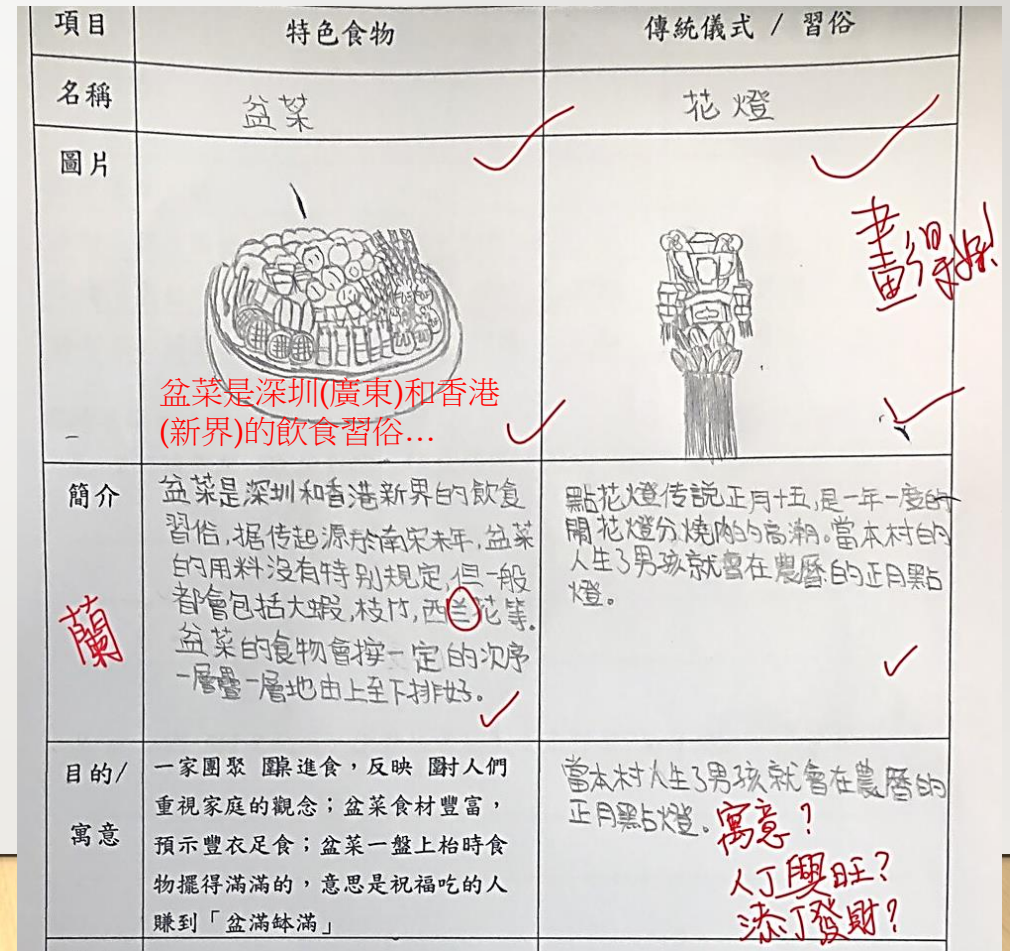 項目
特色食物
傳統儀式 / 習俗
名稱
盆菜
花燈
圖片
畫得好!
盆菜是深圳(廣東)和香港
(新界)的飲食習俗…
簡介
盆菜是深圳和香港新界的飲食
習俗,据传起源於南宋末年,盆菜
的用料沒有特別規定,但一般
都會包括大蝦,枝竹,西兰花等。
盆菜的食物會按一定的次序
一層疊一層地由上至下排好。
蘭
點花燈传説正月十五,是一年一度的
開花燈分燒肉的高潮。當本村的
人生了男孩就會在農曆的正月點
燈。
目的/
寓意
一家團聚 圍桌進食,反映 圍村人們
重視家庭的觀念;盆菜食材豐富,
預示豐衣足食;盆菜一盤上枱時食
物擺得滿滿的,意思是祝福吃的人
賺到「盆滿缽滿」
當本村人生了男孩就會在農曆的
正月點燈。
寓意?
人丁興旺?
添丁發財?